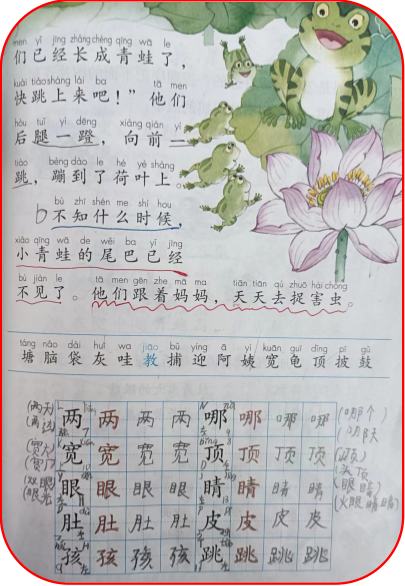 men yǐ jīng zhǎng chéng qīng wā le
们已经长成青蛙了，
kuài tiào shàng lái ba tā men
快跳上来吧！”他们
hòu tuǐ yī dēng xiàng qián yí
后腿一蹬，向前一
tiào bèng dào le hé yè shàng
跳，蹦到了荷叶上。
bù zhī shén me shí hou
6 不知什么时候，
xiǎo qīng wā de wěi ba yǐ jīng
小青蛙的尾巴已经
bú jiàn le tā men gēn zhe mā ma tiān tiān qù zhuō hài chóng
不见了。他们跟着妈妈，天天去捉害虫。
táng nǎo dài huī wa jiāo bǔ yíng ā yí kuān guī dǐng pī gǔ
塘 脑 袋 灰 哇 教 捕 迎 阿 姨 宽 龟 顶 披 鼓
(两天) 两 两 两 两 哪 哪 哪 哪 (哪个)
(宽大) 宽 宽 宽 宽 顶 顶 顶 顶 头顶
双眼 眼 眼 眼 眼 睛 睛 睛 睛 (眼睛)
眼光 肚 肚 肚 肚 皮 皮 皮 皮
孩 孩 孩 孩 跳 跳 跳 跳